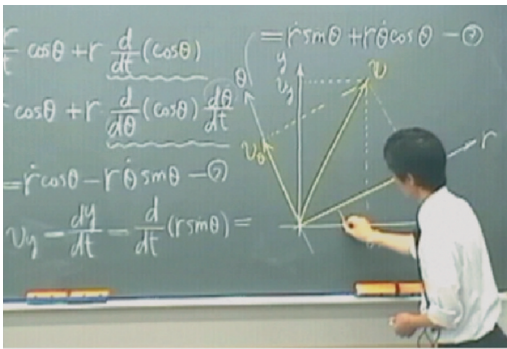 cosθ + r d/dt (cosθ)
cosθ + r d/dθ (cosθ) dθ/dt
= ṙcosθ − rθ̇ sinθ −
vy = dy/dt = d/dt (r sinθ) =
= ṙsinθ + rθ̇ cosθ −
y
vy
v
θ
vθ
r